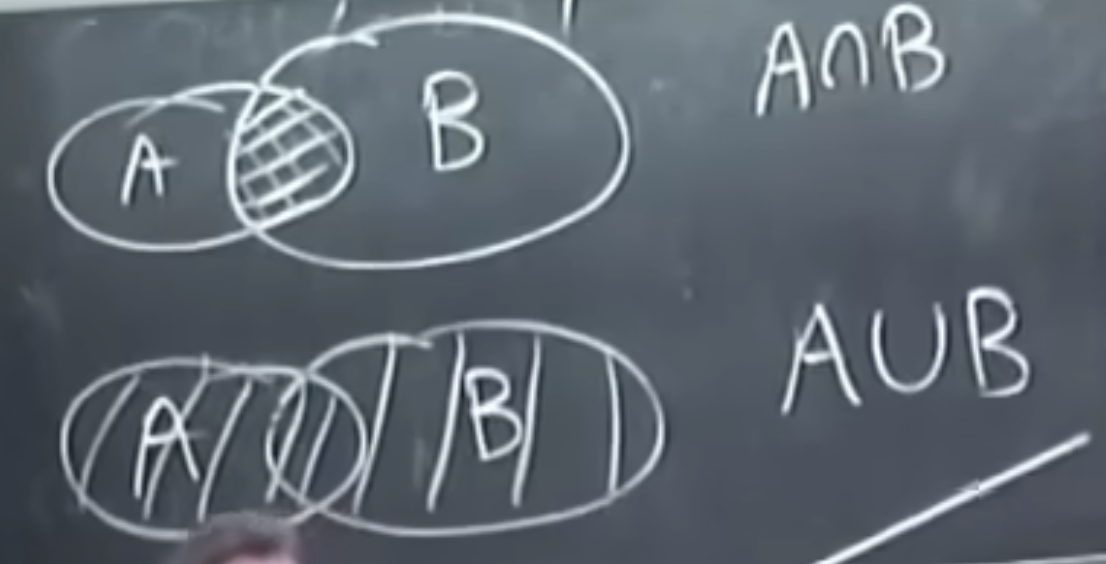 A B A∩B
A B A∪B